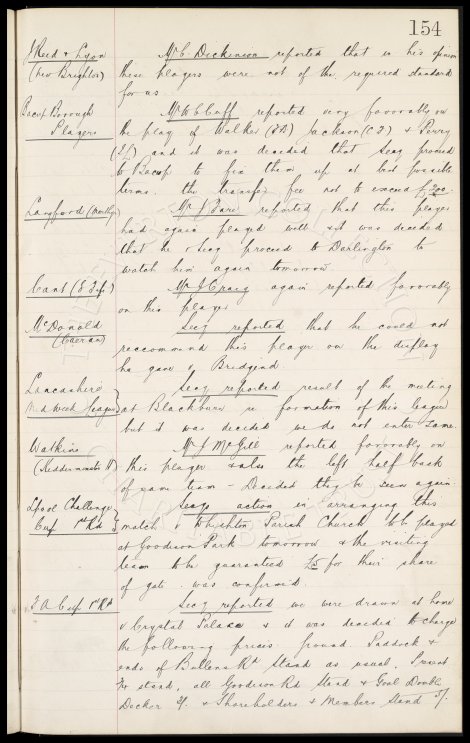 154
J Reed & Lyon Mr C. Dickinson reported that in his opinion
(New Brighton) these players were not of the required standard
for us
Bacup Borough Mr W C Cuff reported very favorably on
Players the play of Walker (I.R) Jackson (C F) & Perry
(I L) and it was decided that Secy proceed
to Bacup to fix them up at best possible
terms. the transfer fee not to exceed £200.
Langford (Mr J Fare reported that this player
had again played well & it was decided
that he & Secy proceed to Darlington to
watch him again tomorrow
Cant (E Fife) Mr J Craig again reported favorably
on this player
McDonald Secy reported that he could not
(Caerau) reccommend this player on the display
he gave v Bridgend.
Lancashire Secy reported result of the meeting
Mid Week League at Blackburn re formation of this league
but it was decided we do not enter same.
Watkins Mr J McGill reported favorably on
(Kidderminster H) this player & also the left half back
of same team - Decided they be seen again
Lpool Challenge Secys action in arranging this
Cup 1st Rd match v Whiston Parish Church to be played
at Goodison Park tomorrow & the visiting
team to be guaranteed £5 for their share
of gate was confirmed.
F A Cup 1st Rd Secy reported we were drawn at home
v Crystal Palace & it was decided to charge
the following prices ground Paddock &
ends of Bullens Rd Stand as usual,
stand, all Goodison Rd Stand & Goal Double
Decker & Shareholders & Members Stand 5/-